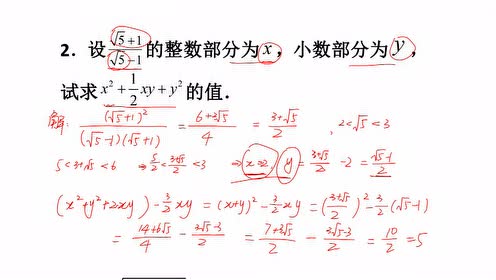 2. 设 (√5+1)/(√5-1) 的整数部分为 x, 小数部分为 y,
试求 x² + 1/2 xy + y² 的值.
解: (√5+1)²/((√5-1)(√5+1)) = (6+2√5)/4 = (3+√5)/2 , 2<√5<3
5<3+√5<6 ⇒ 5/2<(3+√5)/2<3 ⇒ x=2, y=(3+√5)/2 -2 = (√5-1)/2
(x²+y²+2xy) - 3/2 xy = (x+y)² - 3/2 xy = ((3+√5)/2)² - 3/2 (√5-1)
= (14+6√5)/4 - (3√5-3)/2 = (7+3√5)/2 - (3√5-3)/2 = 10/2 = 5